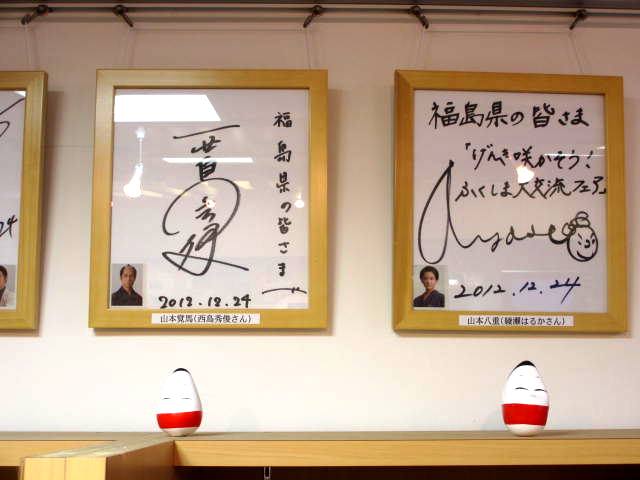 24
福島県の皆さまへ
2012.12.24
山本覚馬(西島秀俊さん)
福島県の皆さま
「げんき咲かそう!
ふくしま大交流フェア」
2012.12.24
山本八重(綾瀬はるかさん)